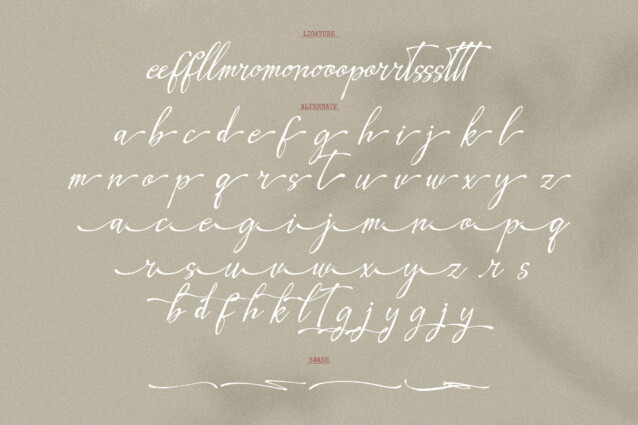 LIGATURE
eeffllmromonoooporrtsssttt
ALTERNATE
a b c d e f g h i j k l
m n o p q r s t u v w x y z
a c e g i j m n o p q
r s u v w x y z r s
b d f h k l t g j y g j y
SWASH